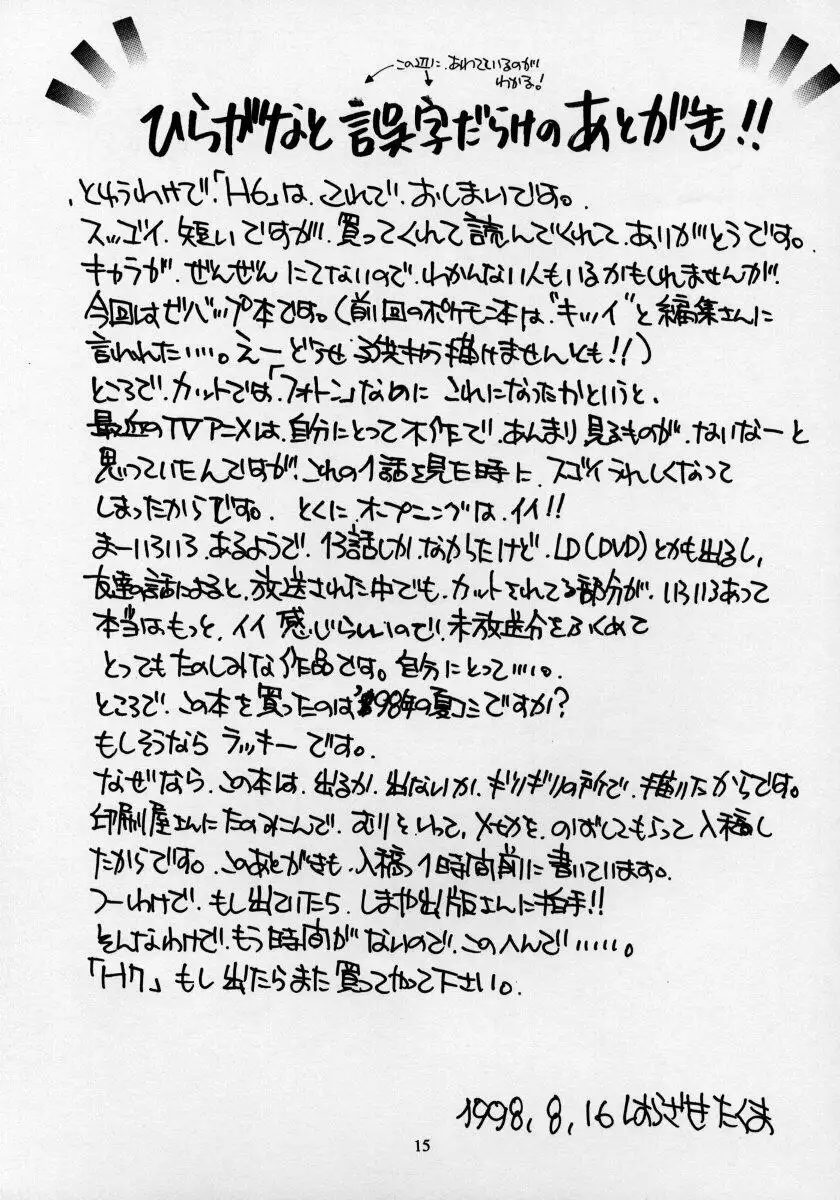 この辺に、あわてているのが
わかる!
ひらがなと誤字だらけのあとがき!!
とゆうわけで、「H6」は、これで、おしまいです。
スッゴイ、短いですが、買ってくれて読んでくれて、ありがとうです。
キャラが、ぜんぜん にてないので、わかんない人もいるかもしれませんが、
今回はゼバップ本です。(前回のポケモン本は、"キッツイ"と編集さんに
言われた……。えーどうせ 描けませんとも!!)
ところで、カットでは、「フォトン」なのに これになったかというと、
最近のTVアニメは、自分にとって不作で、あんまり見るものが、ないなーと
思っていたんですが、これの1話を見た時に、スゴイうれしくなって
しまったからです。とくに オープニングは、イイ!!
まーいろいろ、あるようで、13話しか、なかったけど、LD(DVD)とかも出るし、
友達の話によると、放送された中でも、カットされてる部分が、いろいろあって
本当は、もっと、イイ 感じらしいので、未放送分をふくめて
とってもたのしみな作品です。自分にとって……。
ところで、この本を買ったのは'98年の夏コミですか?
もしそうなら ラッキーです。
なぜなら、この本は、出るか、出ないか、ギリギリの所で、描いたからです。
印刷屋さんにたのみこんで、むりをいって、〆切を、のばしてもらって入稿し
たからです。このあとがきも、入稿1時間前に書いています。
つーわけで、もし出ていたら、しまや出版さんに拍手!!
そんなわけで、もう時間がないので、このへんで……。
「H7」もし出たらまた買ってやって下さい。
1998,8,16 はらざきたくま
15